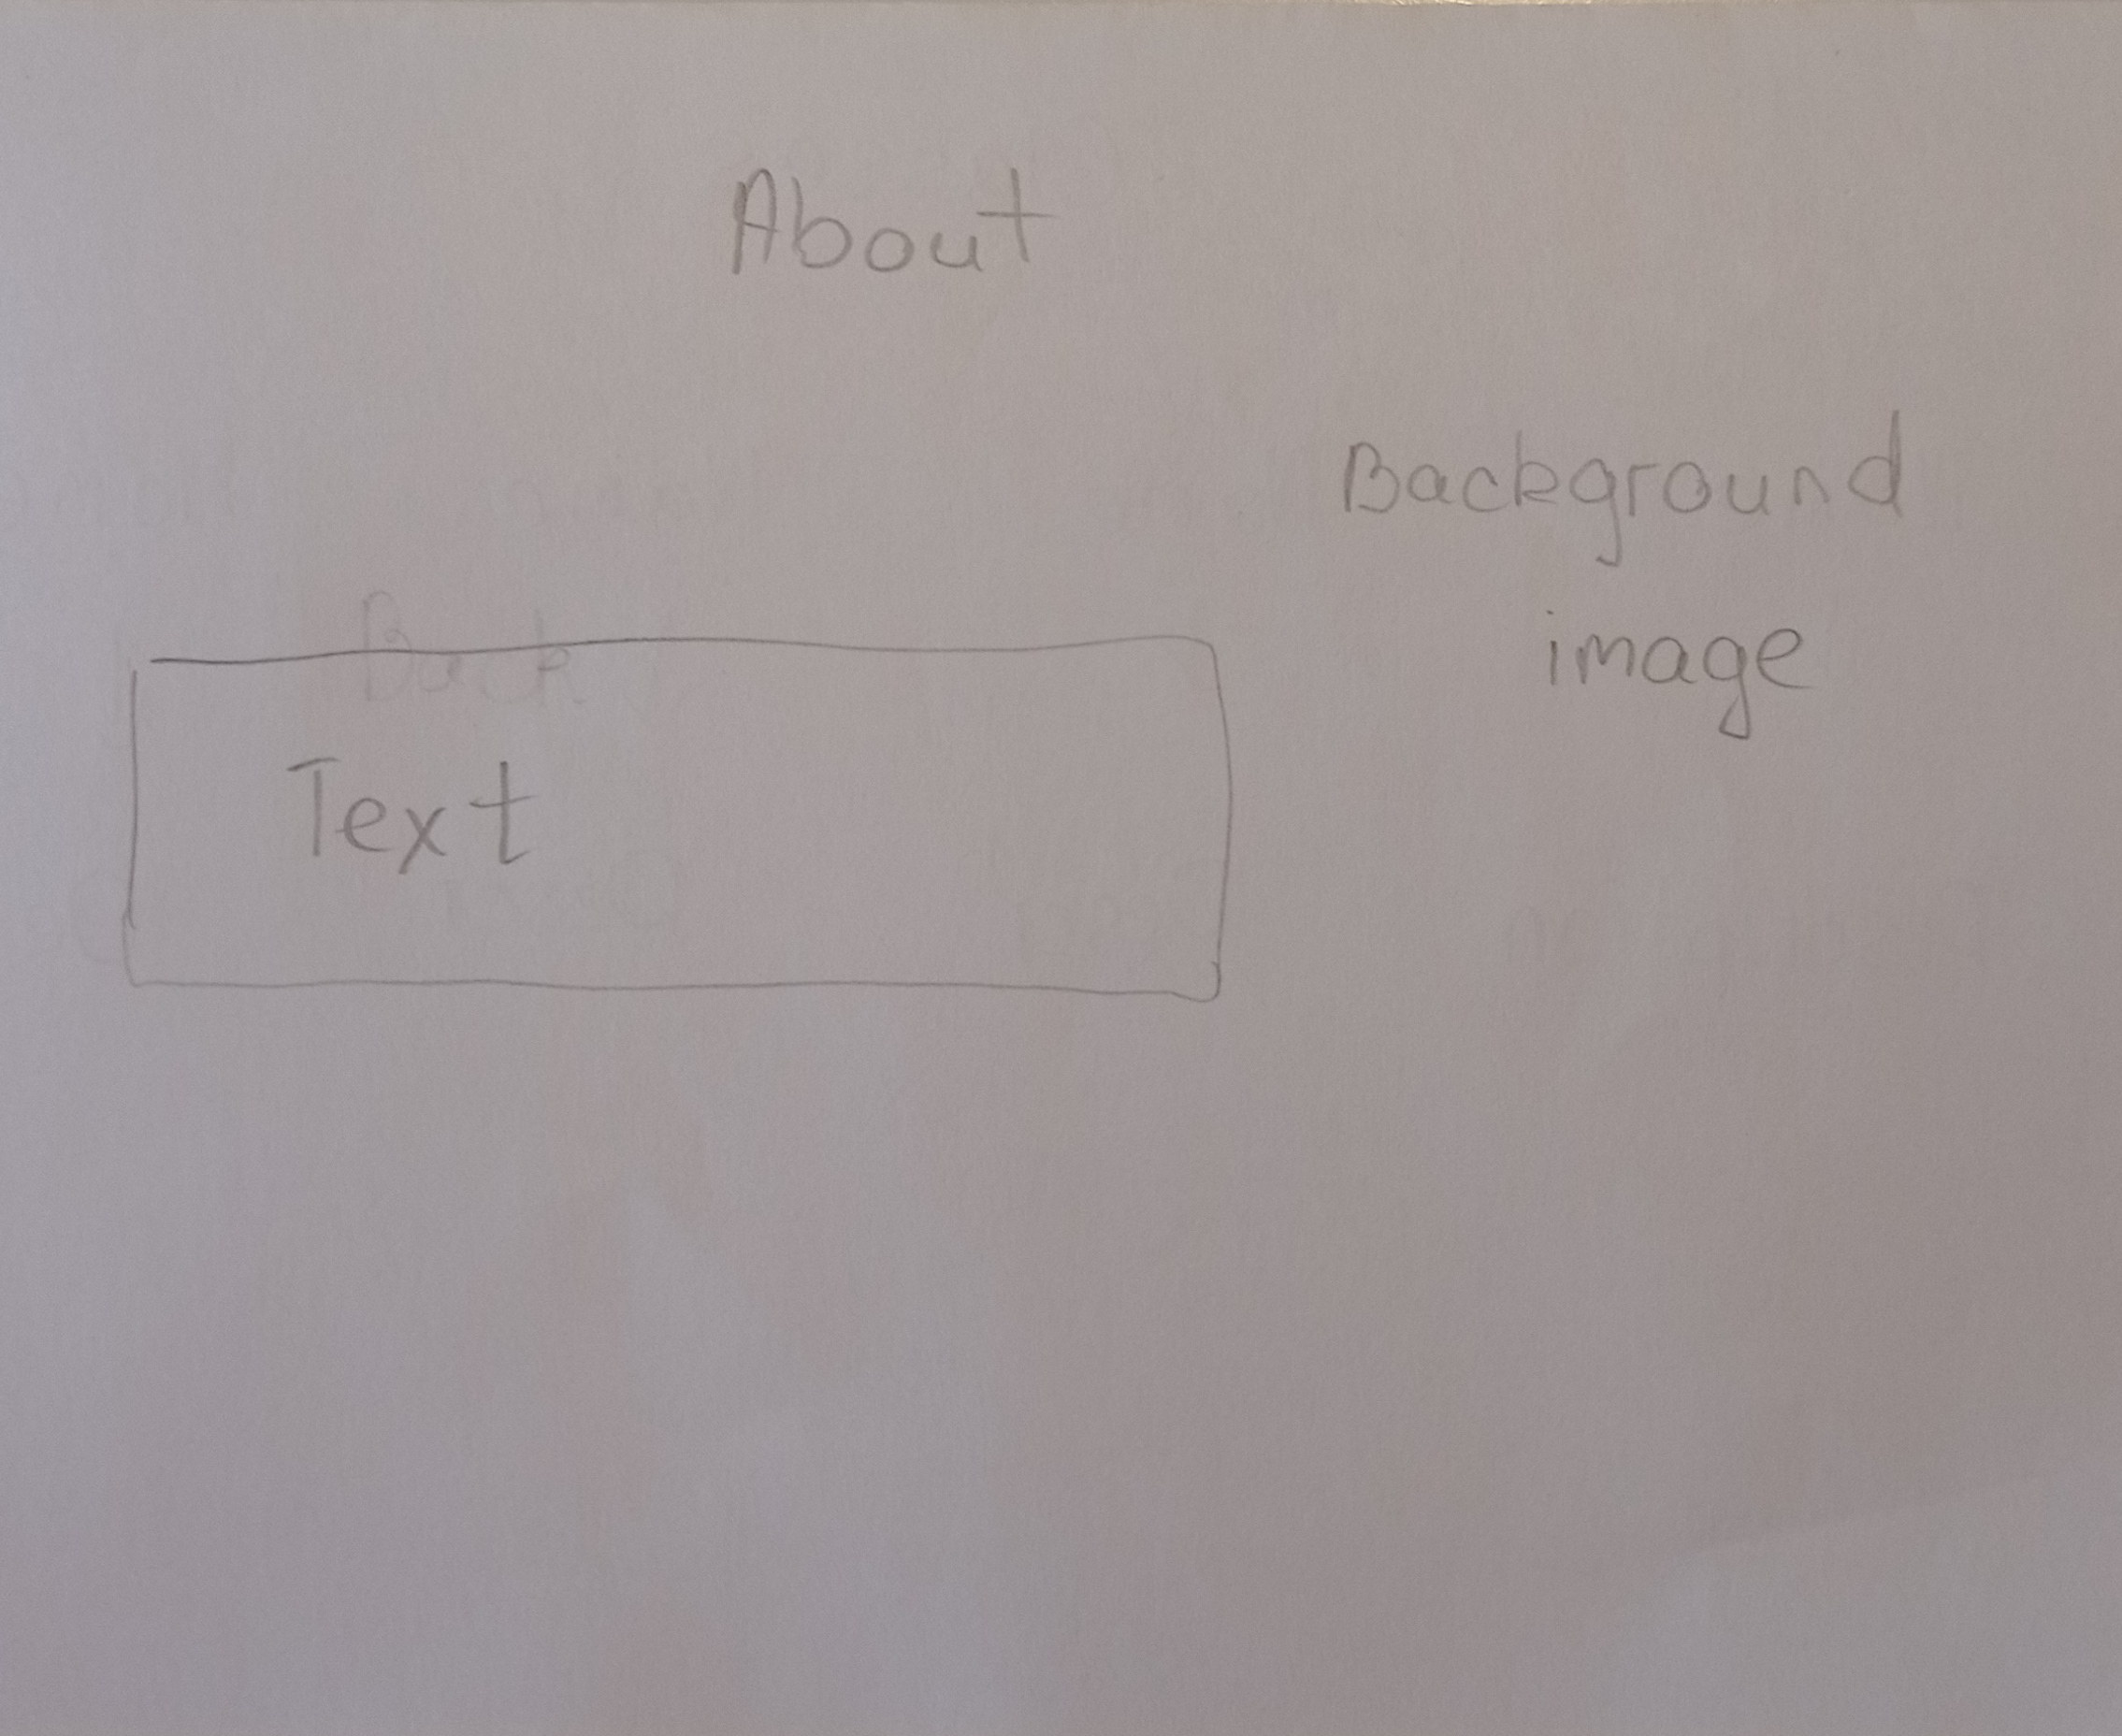 About
Background
image
Back
Text